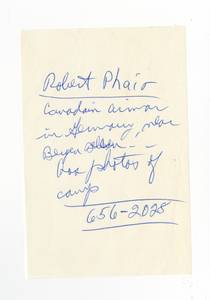 Robert Phair
Canadain airman
in Germany, near
Bergen Belsen --
has photos of
camp
656-2028